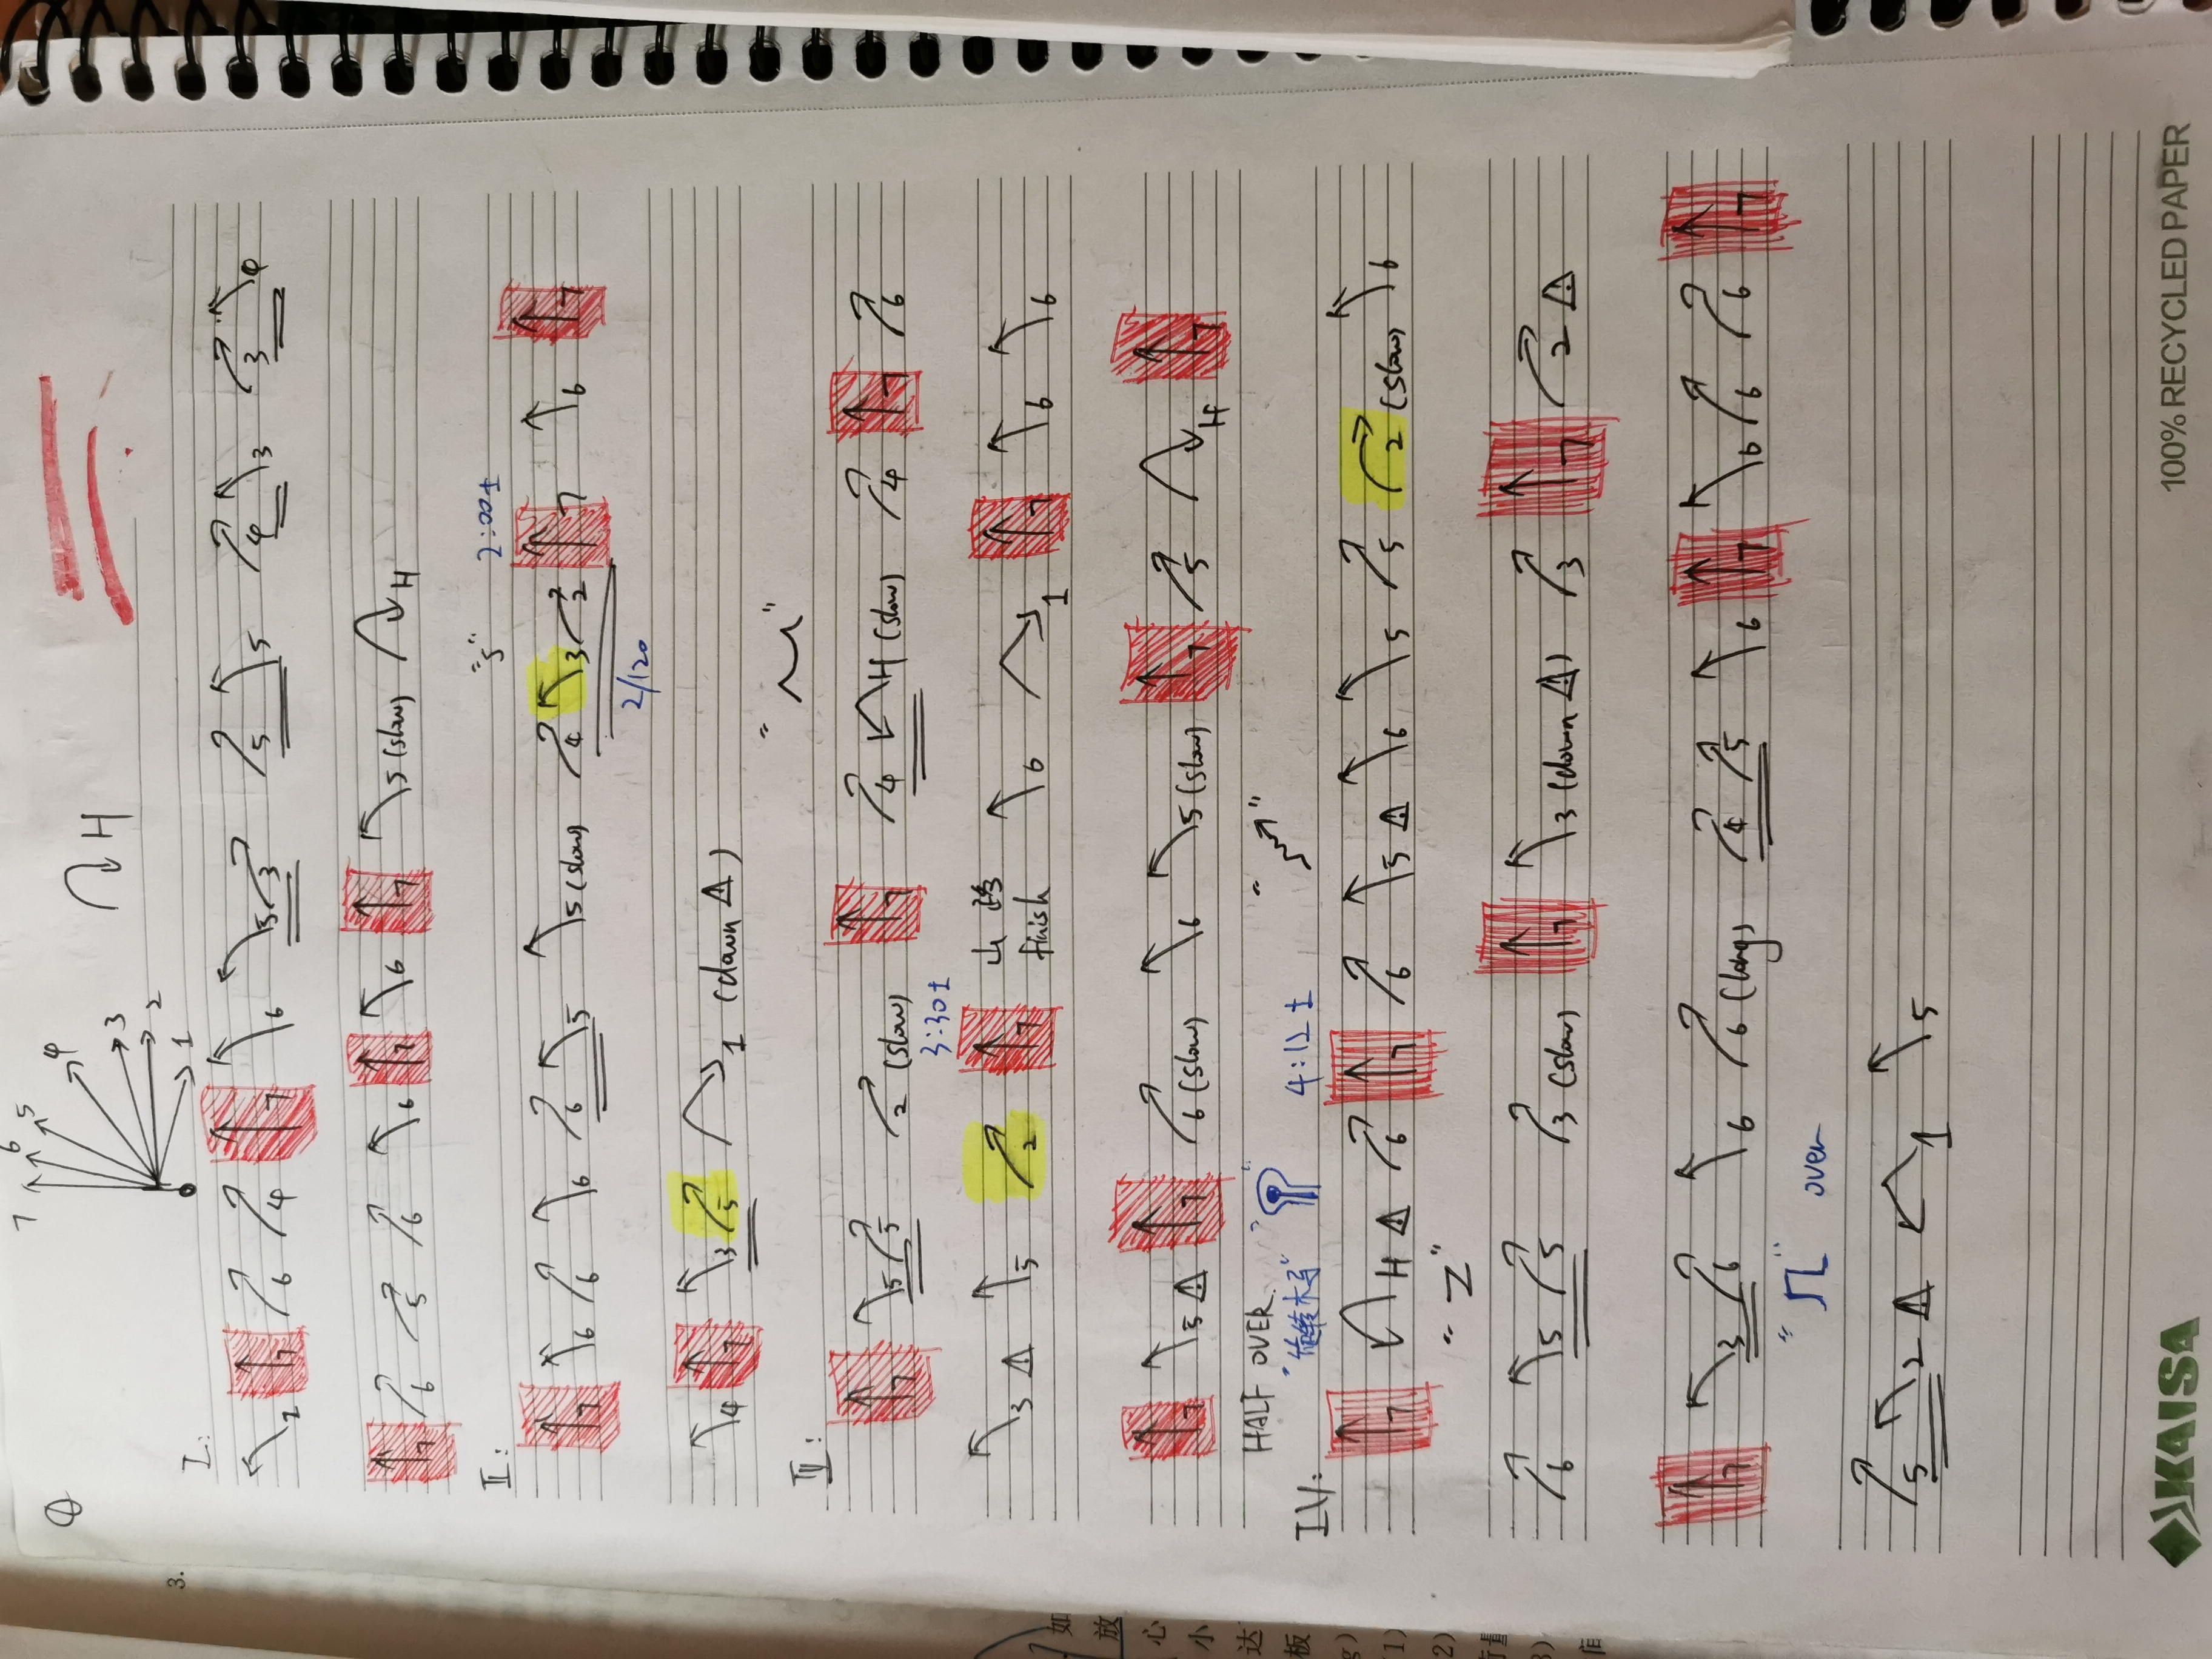 7 6 5 4 3 2 1
H
I:
2 7 6 4 7 6 3 3 5 5 4 3 3 4
7 6 5 6 6 7 6 7 5 (slow) H
II:
2:00±
7 6 6 6 6 5 5 (slow) 4 3 2 7 6 7
2/120
4 7 3 5 1 (down △)
III:
7 5 5 2 (slow) 7 4 H (slow) 4 7 6
3:30±
3 △ 5 2 7 finish 6 1 7 6 6
7 5 △ 7 6 (slow) 6 5 (slow) 7 5 H 7
HALF OVER.
"旋转木马"
4:12±
IV:
7 H △ 6 7 6 5 △ 6 5 5 2 (slow) 6
"Z"
6 5 5 3 (slow) 7 3 (down △) 3 7 2 △
7 3 6 6 6 (long) 4 5 6 7 6 6 6 7
over
5 2 △ 1 5
KAISA
100% RECYCLED PAPER
3.
如
放
心
小
达
板